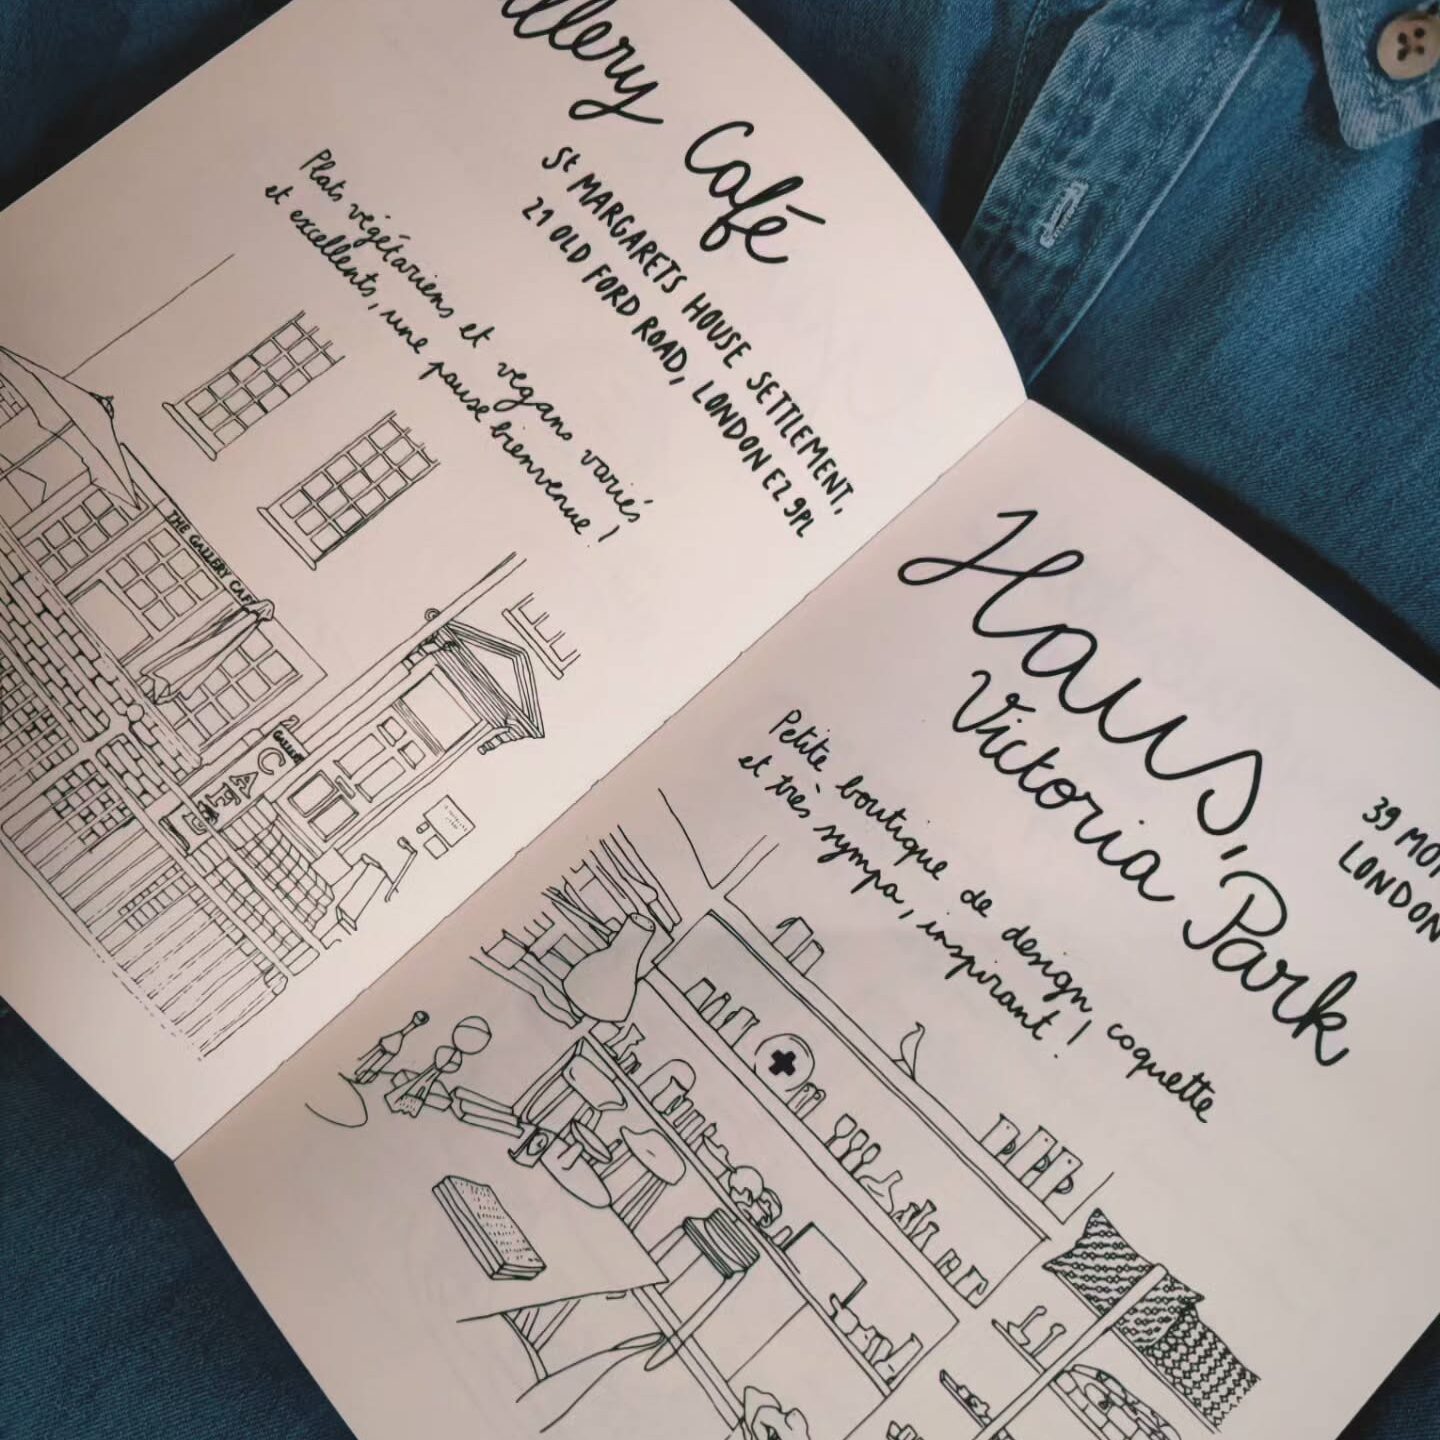 Café
St MARGARETS HOUSE SETTLEMENT,
21 OLD FORD ROAD, LONDON E2 9PL
Plats végétariens et vegans variés
et excellents, une pause bienvenue !
THE GALLERY CAFE
GALLERY
CAFE
Haus,
Victoria Park
39
LONDON
Petite boutique de design, coquette
et très sympa, inspirant !